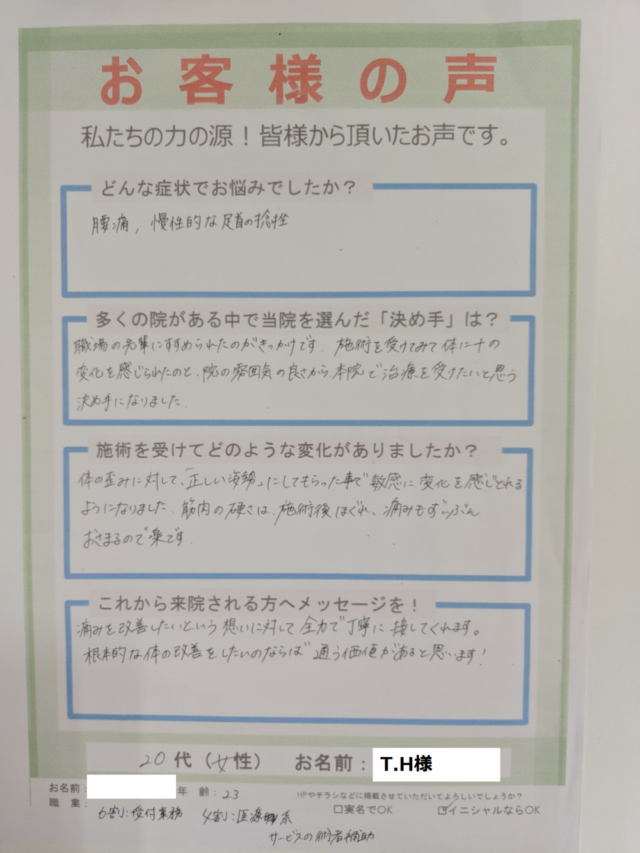 お客様の声
私たちの力の源！皆様から頂いたお声です。
どんな症状でお悩みでしたか？
腰痛，慢性的な足首の捻挫
多くの院がある中で当院を選んだ「決め手」は？
職場の先輩にすすめられたのがきっかけです．施術を受けてみて体に＋の
変化を感じられたのと、院の雰囲気の良さから、本院で治療を受けたいと思う
決め手になりました．
施術を受けてどのような変化がありましたか？
体の歪みに対して、「正しい姿勢」にしてもらった事で敏感に変化を感じとれる
ようになりました．筋肉の硬さは、施術後ほぐれ、痛みもずいぶん
おさまるので楽です．
これから来院される方へメッセージを！
痛みを改善したいという想いに対して全力で丁寧に接してくれます。
根本的な体の改善をしたいのならば通う価値があると思います！
20代（女性） お名前：T.H様
お名前： 年齢：23 HPやチラシなどに掲載させていただいてよろしいでしょうか？
職業： 6割：受付業務 4割：医療系 □実名でOK ☑イニシャルならOK
サービスの補助